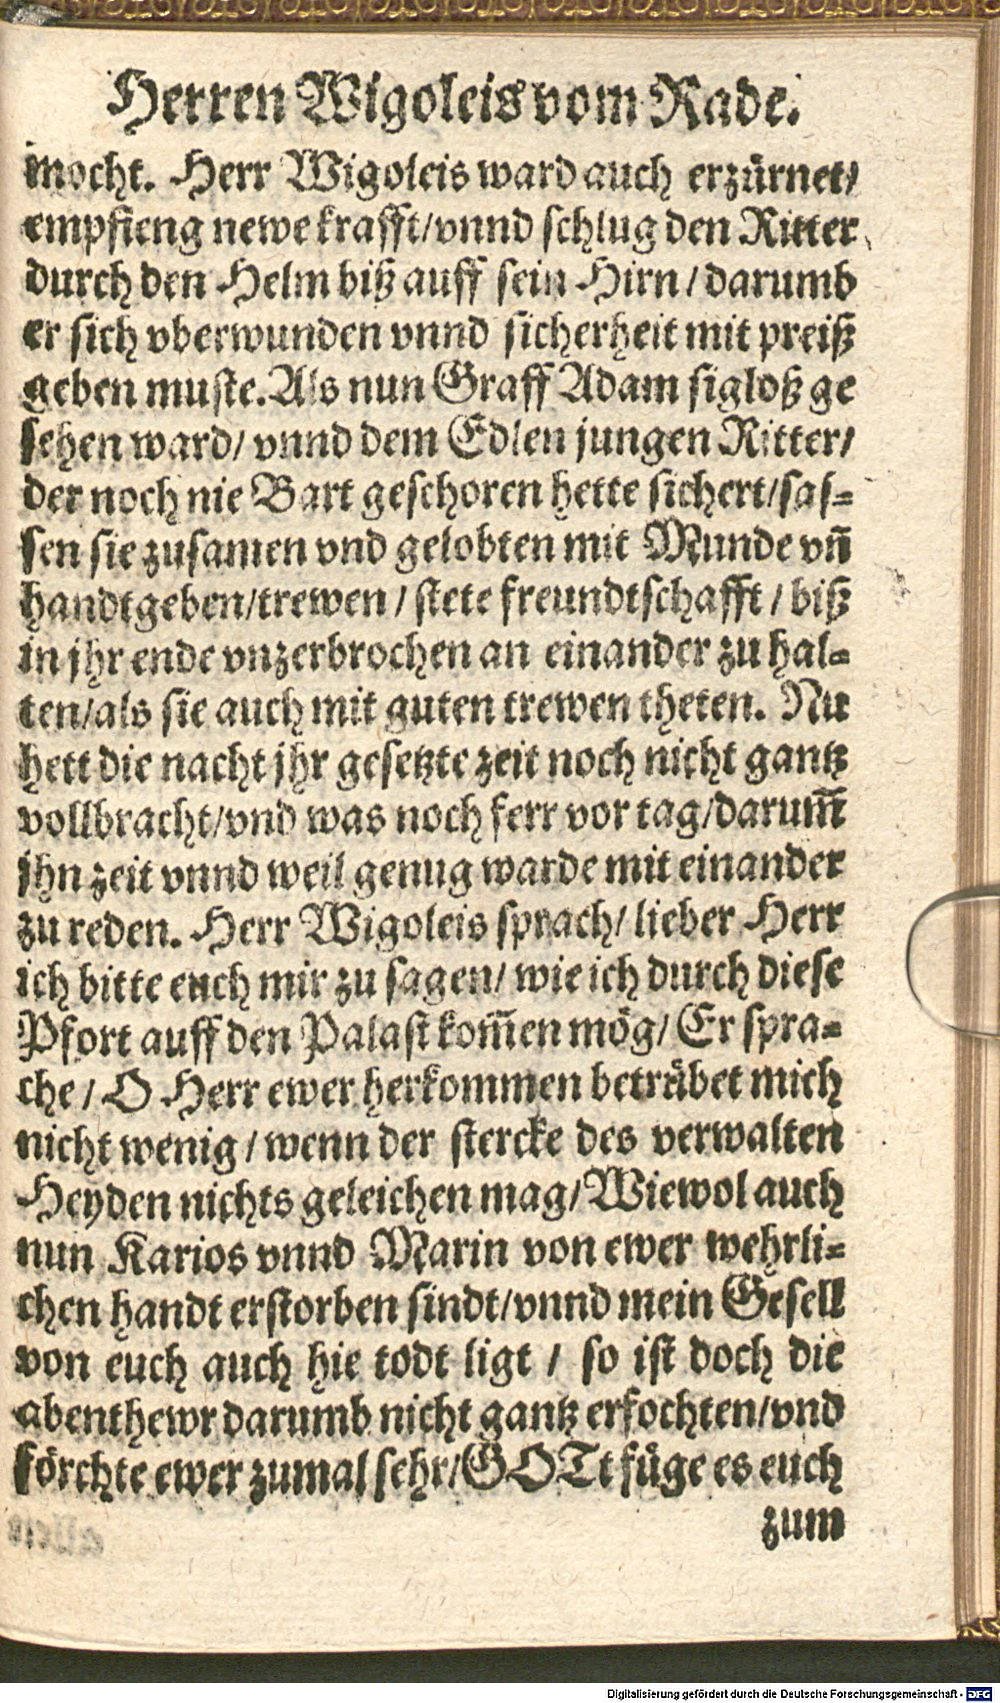 Herren Wigoleis vom Rade.
mocht. Herr Wigoleis ward auch erzürnet/
empfieng newe krafft/vnnd schlug den Ritter
durch den Helm biß auff sein Hirn/darumb
er sich vberwunden vnnd sicherheit mit preiß
geben muste. Als nun Graff Adam sigloß ge
sehen ward/ vnnd dem Edlen jungen Ritter/
der noch nie Bart geschoren hette sichert/sas-
sen sie zusamen vnd gelobten mit Munde vñ
handtgeben/trewen/stete freundtschafft/biß
in jhr ende vnzerbrochen an einander zu hal-
ten/als sie auch mit guten trewen theten. Nu
hett die nacht jhr gesetzte zeit noch nicht gantz
vollbracht/vnd was noch ferr vor tag/darum̄
jhn zeit vnnd weil genug warde mit einander
zu reden. Herr Wigoleis sprach/ lieber Herr
ich bitte euch mir zu sagen/ wie ich durch diese
Pfort auff den Palast kom̄en mög/ Er spra-
che/ O Herr ewer herkommen betrübet mich
nicht wenig/wenn der stercke des verwalten
Heyden nichts geleichen mag/Wiewol auch
nun Karios vnnd Marin von ewer wehrli-
chen handt erstorben sindt/vnnd mein Gesell
von euch auch hie todt ligt / so ist doch die
abenthewr darumb nicht gantz erfochten/vnd
förchte ewer zumal sehr/GOTt füge es euch
zum
Digitalisierung gefördert durch die Deutsche Forschungsgemeinschaft - DFG